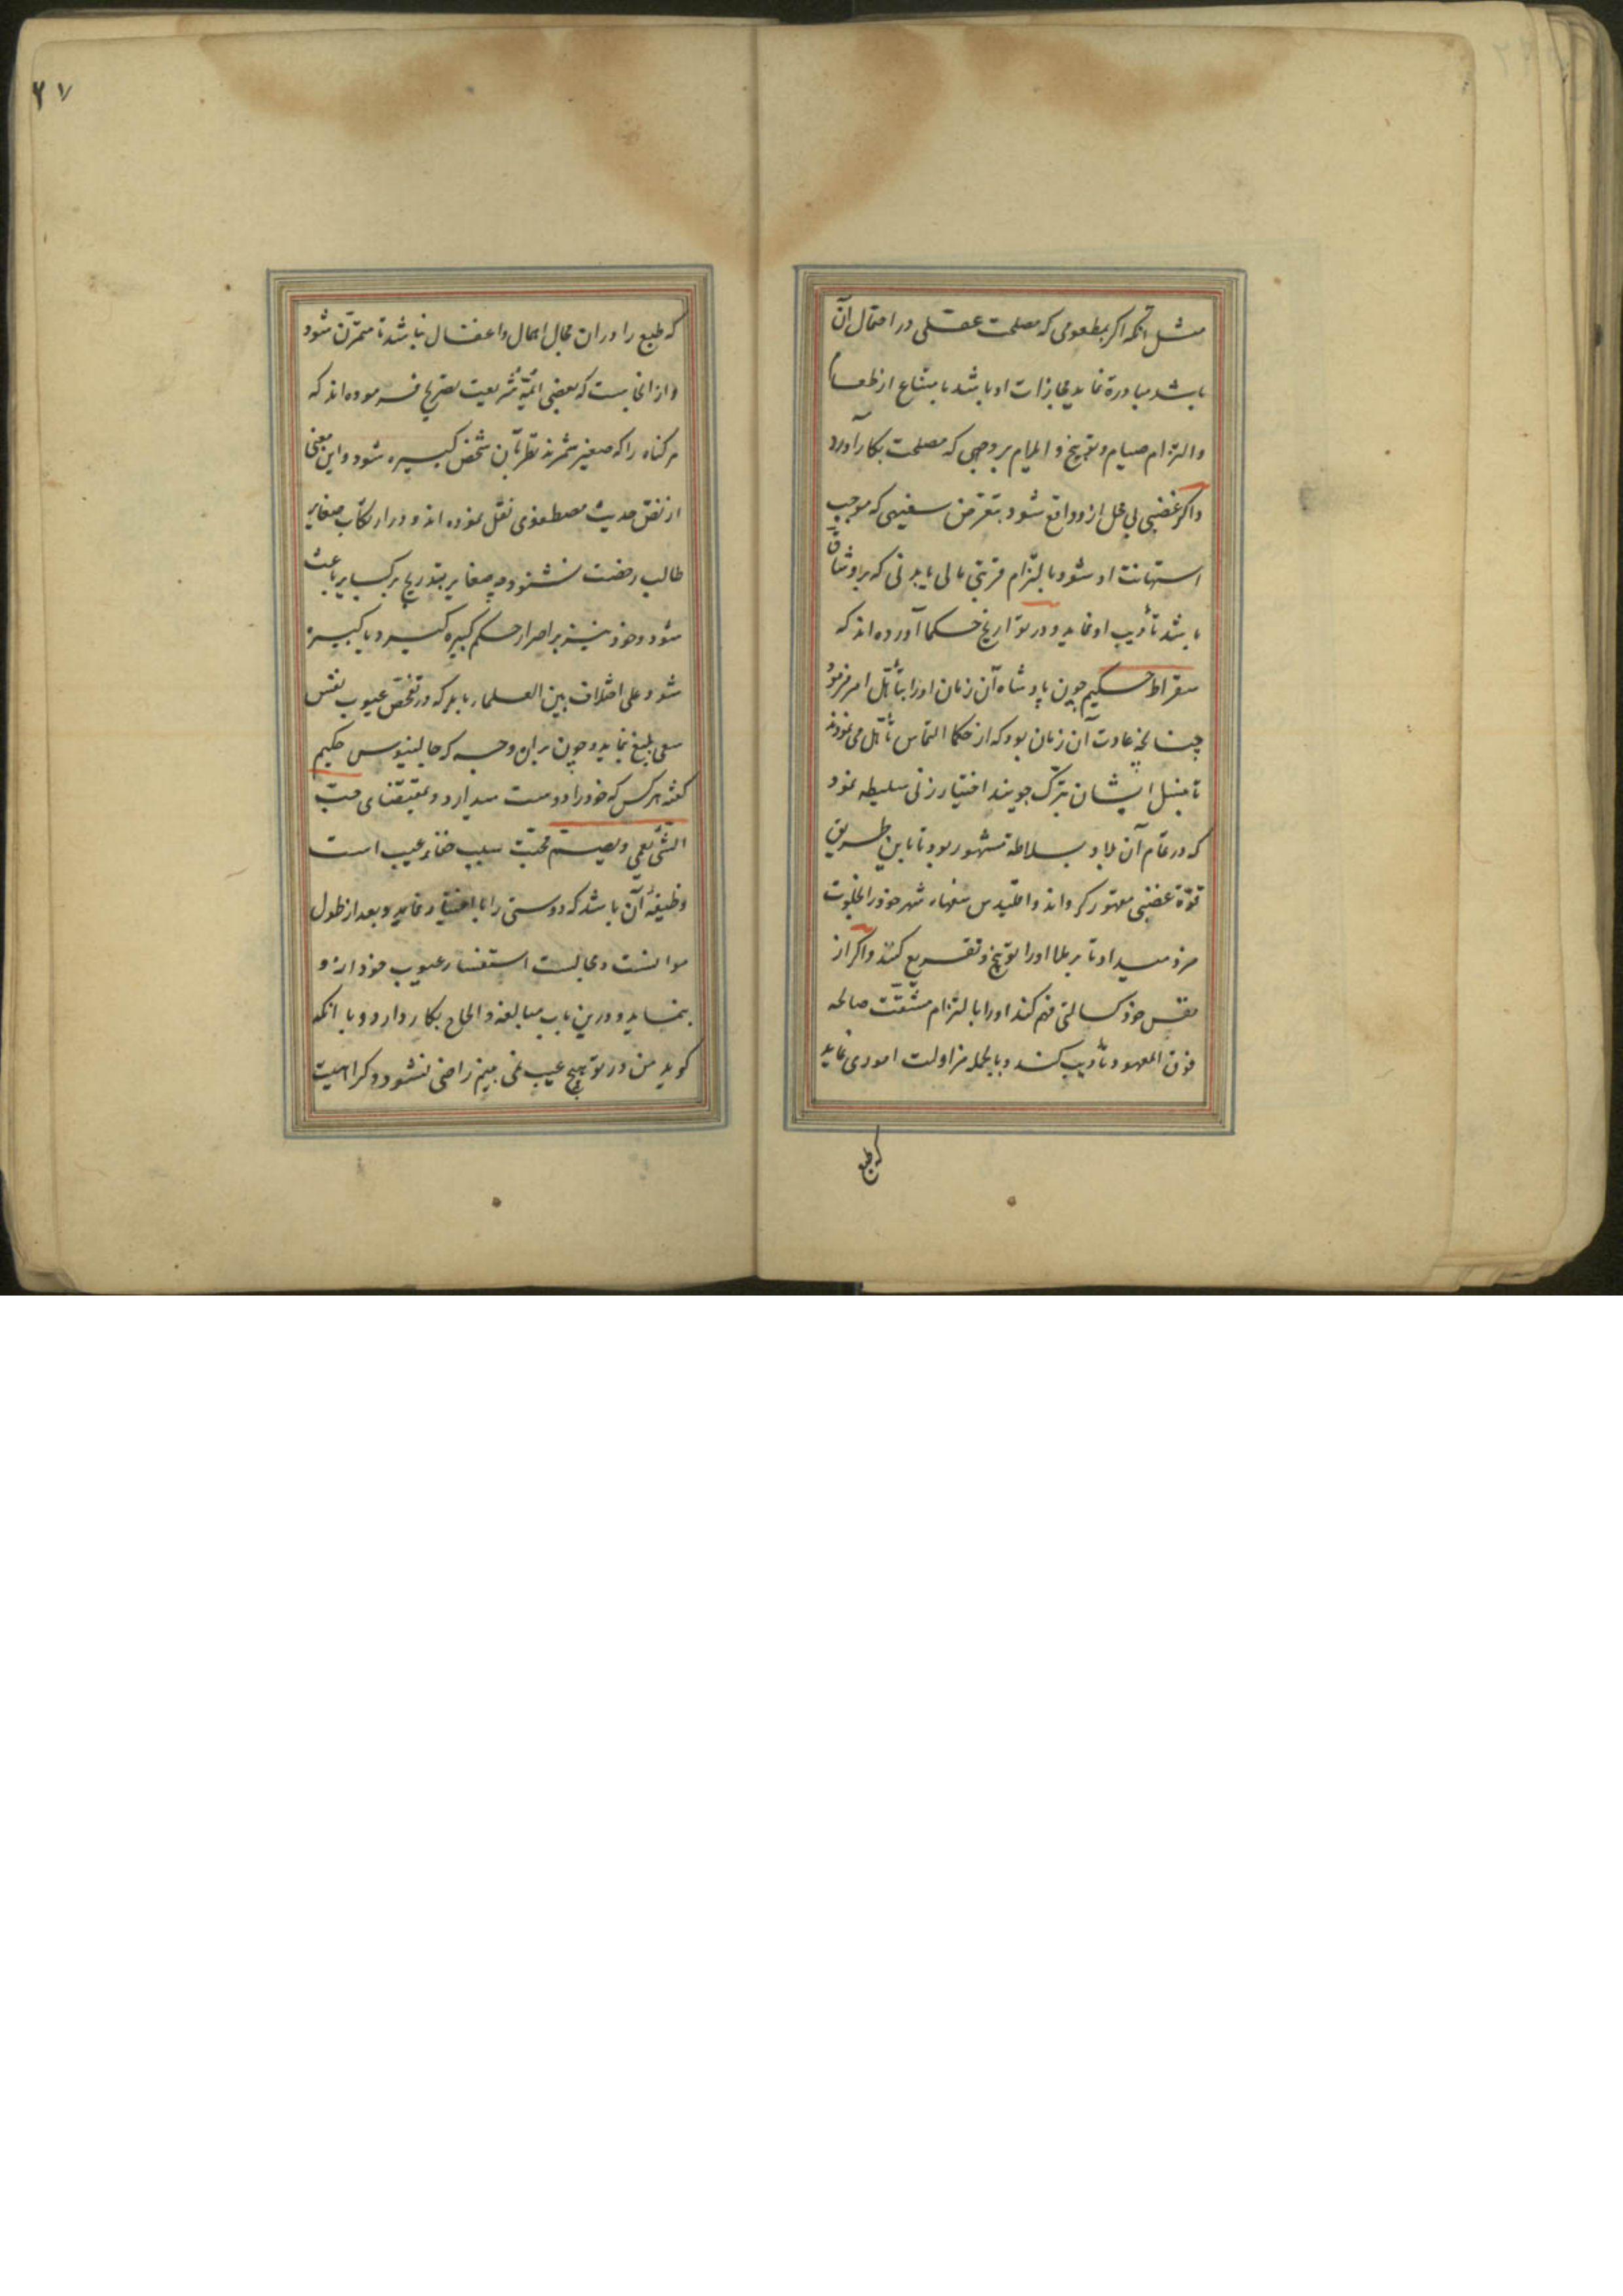 مثل آنکه اکر بمطعومی که مصلحت عقلی در اهمال آن
باشد مبادرة نماید مجازات او باشد بامتناع از طعام
والتزام صیام و توبیخ و ایلام بر وجهی که مصلحت بکار آورد
واکر غضبی بی محل ازو واقع شود بتعرض سفیهی که موجب
استهانت او شود یا بالتزام قربتی مالی یا بدنی که بر او شاق
باشد تأدیب او نماید و در تواریخ حکما آورده اند که
سقراط حکیم چون پادشاه آن زمان اورا بتأهل امر فرمود
چنانچه عادت آن زمان بود که از حکما التماس تأهل می نمودند
تا نسل ایشان بترک جویند اختیار زنی سلیطه نمود
که در تمام آن بلاد بسلاطه مشهور بود تا باین طریق
قوة غضبی مقهور کرداند و اقلیدس سفهاء شهر خود را بخلوت
مزد میداد تا بر ملا اورا توبیخ و تقریع کنند واکر از
نفس خود کسالتی فهم کند اورا بالتزام مشقت صالحه
فوق المعهود تأدیب کند و بالجمله مزاولت اموری نماید
که طبع
۶۷
که طبع را در ان مجال اهمال و اغفال نباشد تا متمرّن شود
و از انجاست که بعضی ائمّهٔ شریعت تصریح فرموده اند که
هر کناه را که صغیر شمرند نظر بآن شخص کبیره شود و این معنی
از نصّ حدیث مصطفوی نقل نموده اند و در ارتکاب صغایر
طالب رخصت نشنود چه صغایر بتدریج بر کبایر باعث
شود و خود نیز بر اصرار حکم کبیره کیرد یا کبیره
شود علی اختلاف بین العلماء باید که در تفحّص عیوب نفس
سعی بلیغ نماید و چون بر ان وجه که جالینوس حکیم
کفته هرکس که خود را دوست میدارد و بمقتضای حبّ
الشّیٔ یعمی و یصمّ محبّت سبب خفاء عیب است
وظیفهٔ آن باشد که دوستی را با اختیار نماید و بعد از طول
موانست و مجالست استفسار عیوب خود از او
بنماید و درین باب مبالغه و الحاح بکار دارد و با انکه
کوید من در تو هیچ عیب نمی بینم راضی نشود و کراهیت